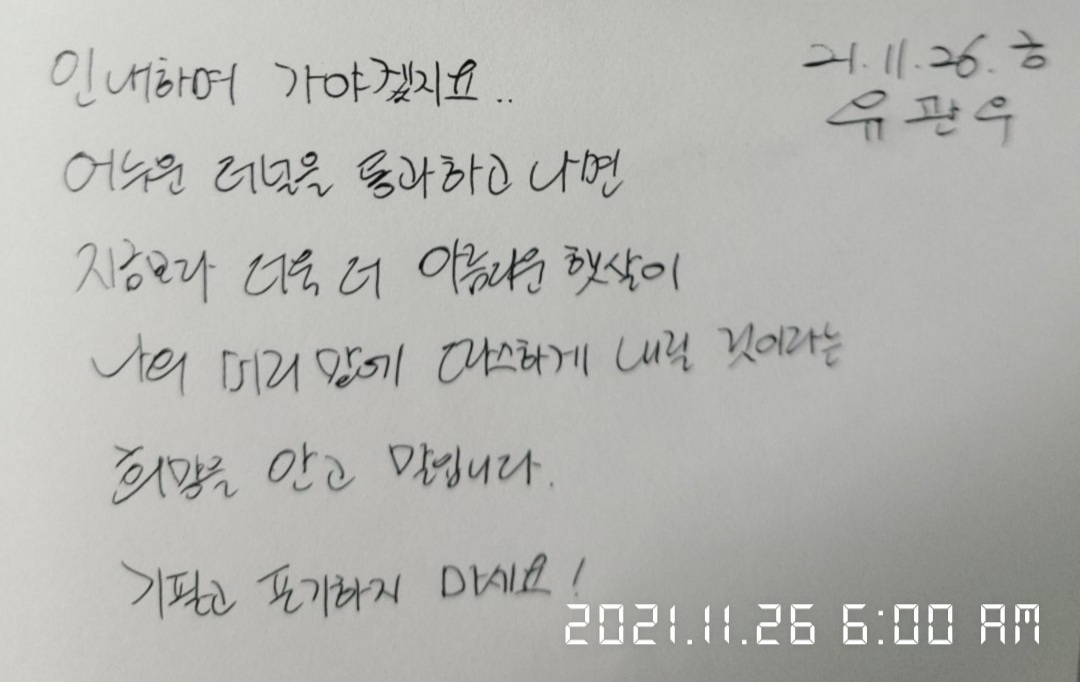 인내하며 가야겠지요..
21.11.26. 흐
유판우
어두운 터널을 통과하고 나면
지금보다 더욱 더 아름다운 햇살이
나의 머리맡에 따스하게 내릴 것이라는
희망을 안고 말입니다.
기필코 포기하지 마세요!
2021.11.26 6:00 AM